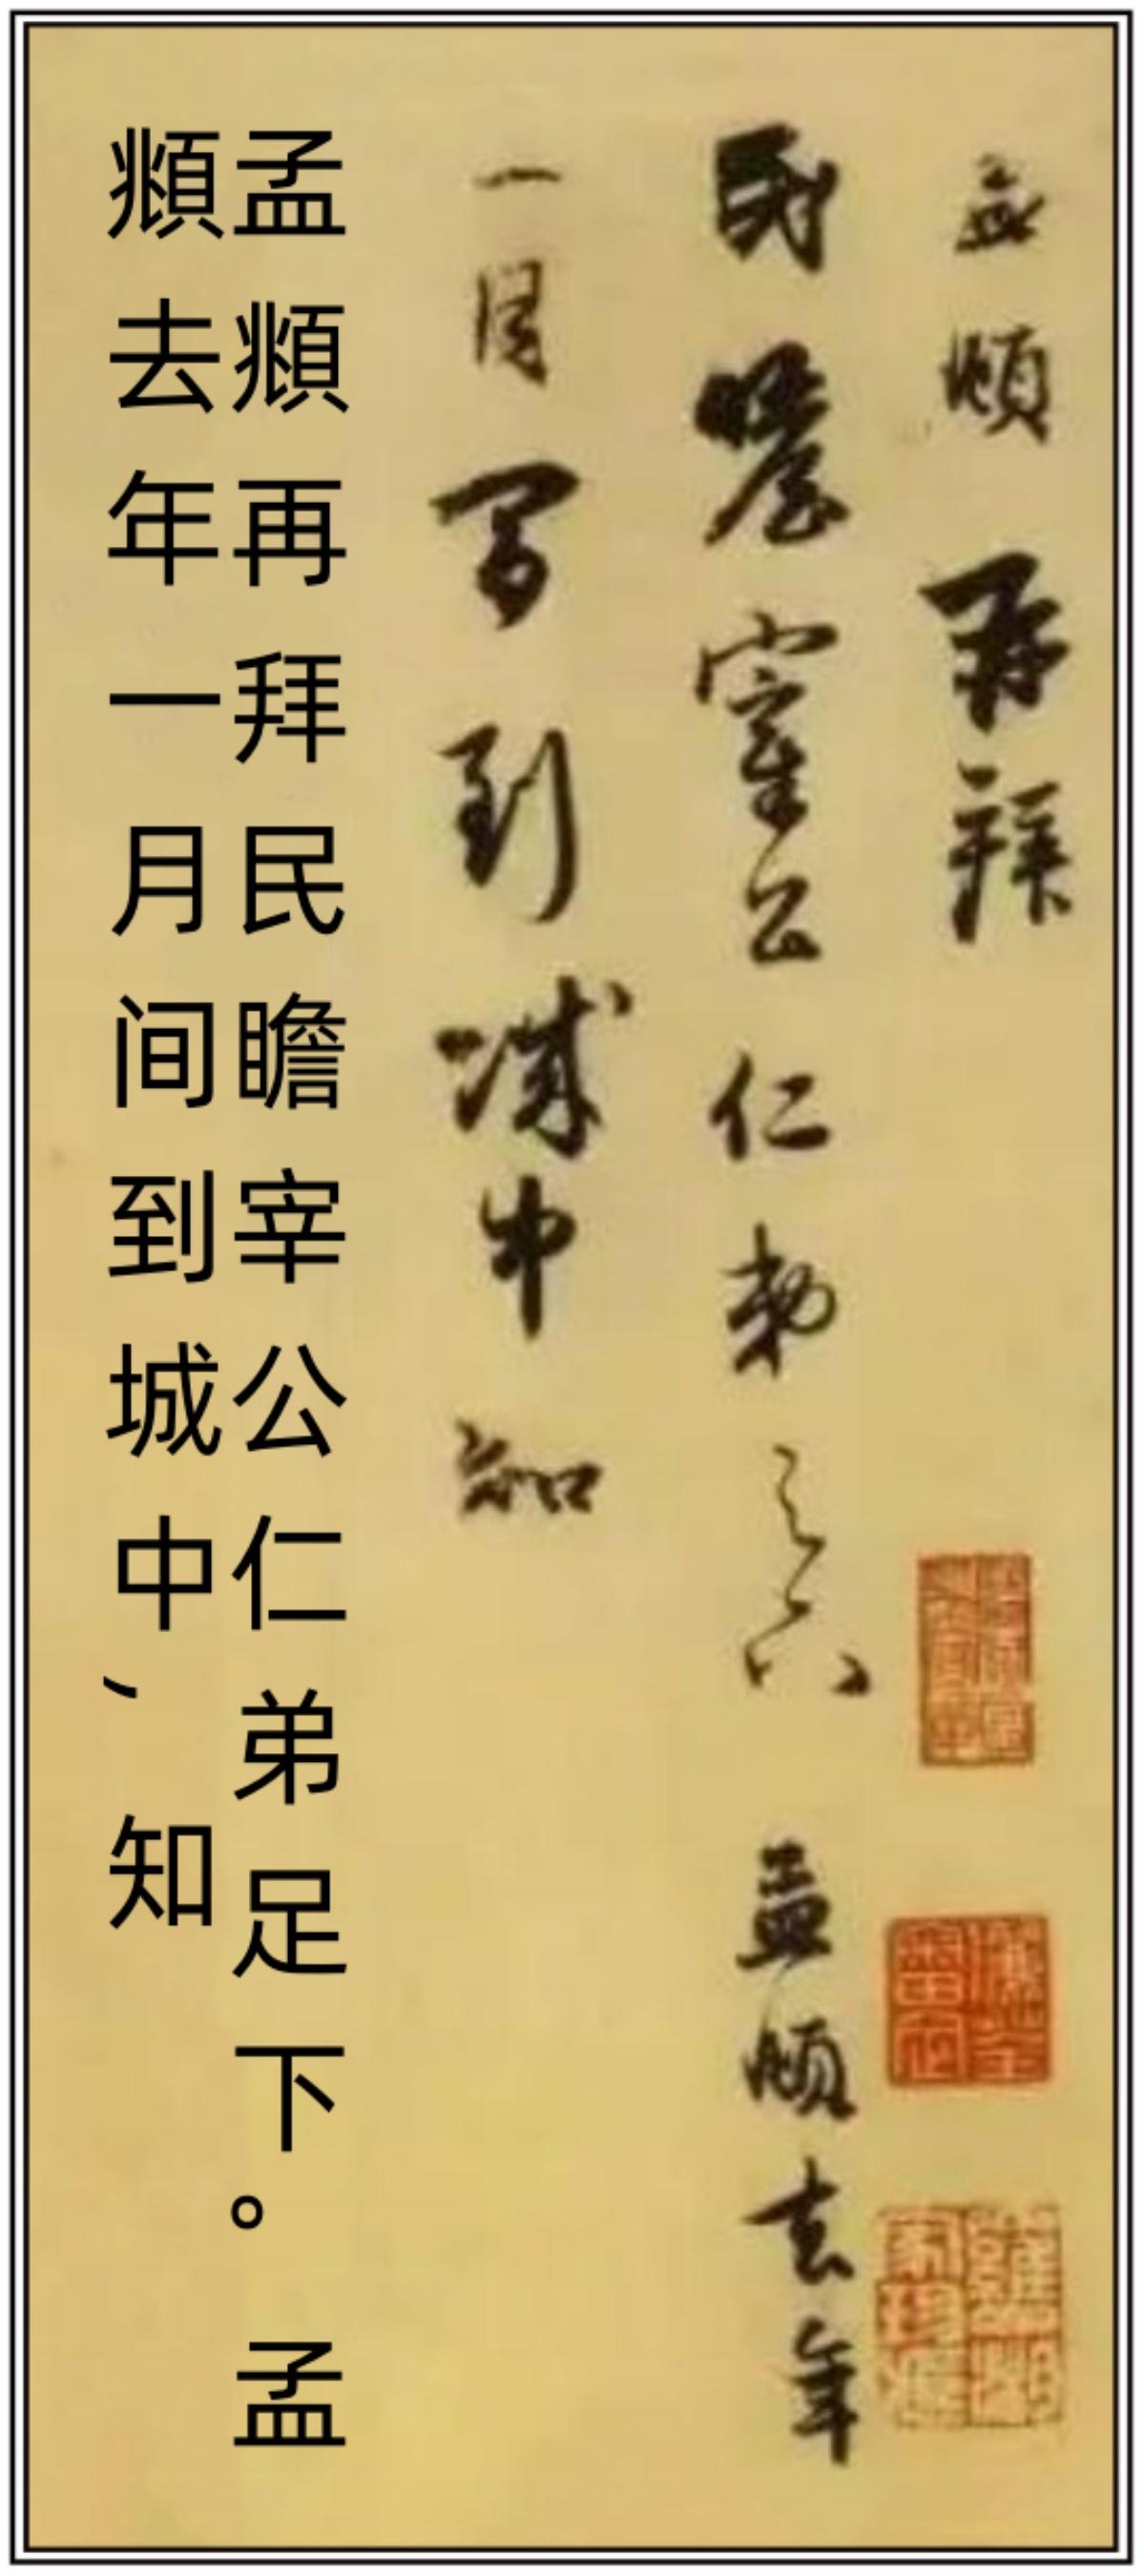 孟頫再拜
民瞻宰公仁弟足下孟頫去年
一月間到城中知
孟頫再拜民瞻宰公仁弟足下。孟
頫去年一月间到城中，知